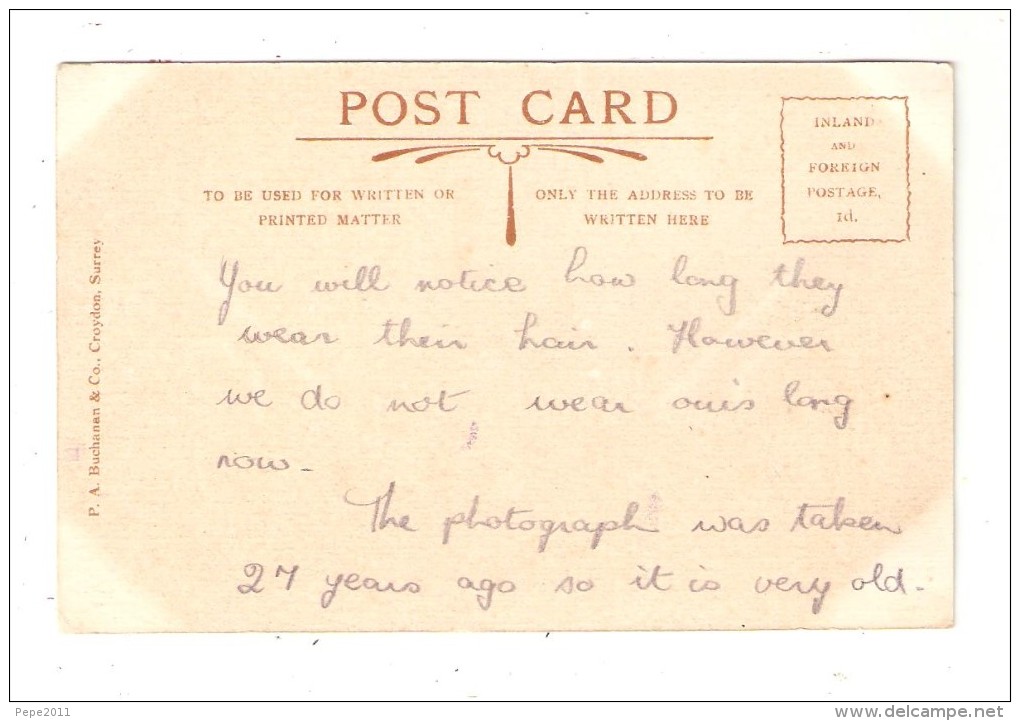 POST CARD
TO BE USED FOR WRITTEN OR
PRINTED MATTER
ONLY THE ADDRESS TO BE
WRITTEN HERE
INLAND
AND
FOREIGN
POSTAGE,
1d.
P. A. Buchanan & Co., Croydon, Surrey
You will notice how long they
wear their hair. However
we do not wear ours long
now.
The photograph was taken
27 years ago so it is very old.
Pepe2011
www.delcampe.net